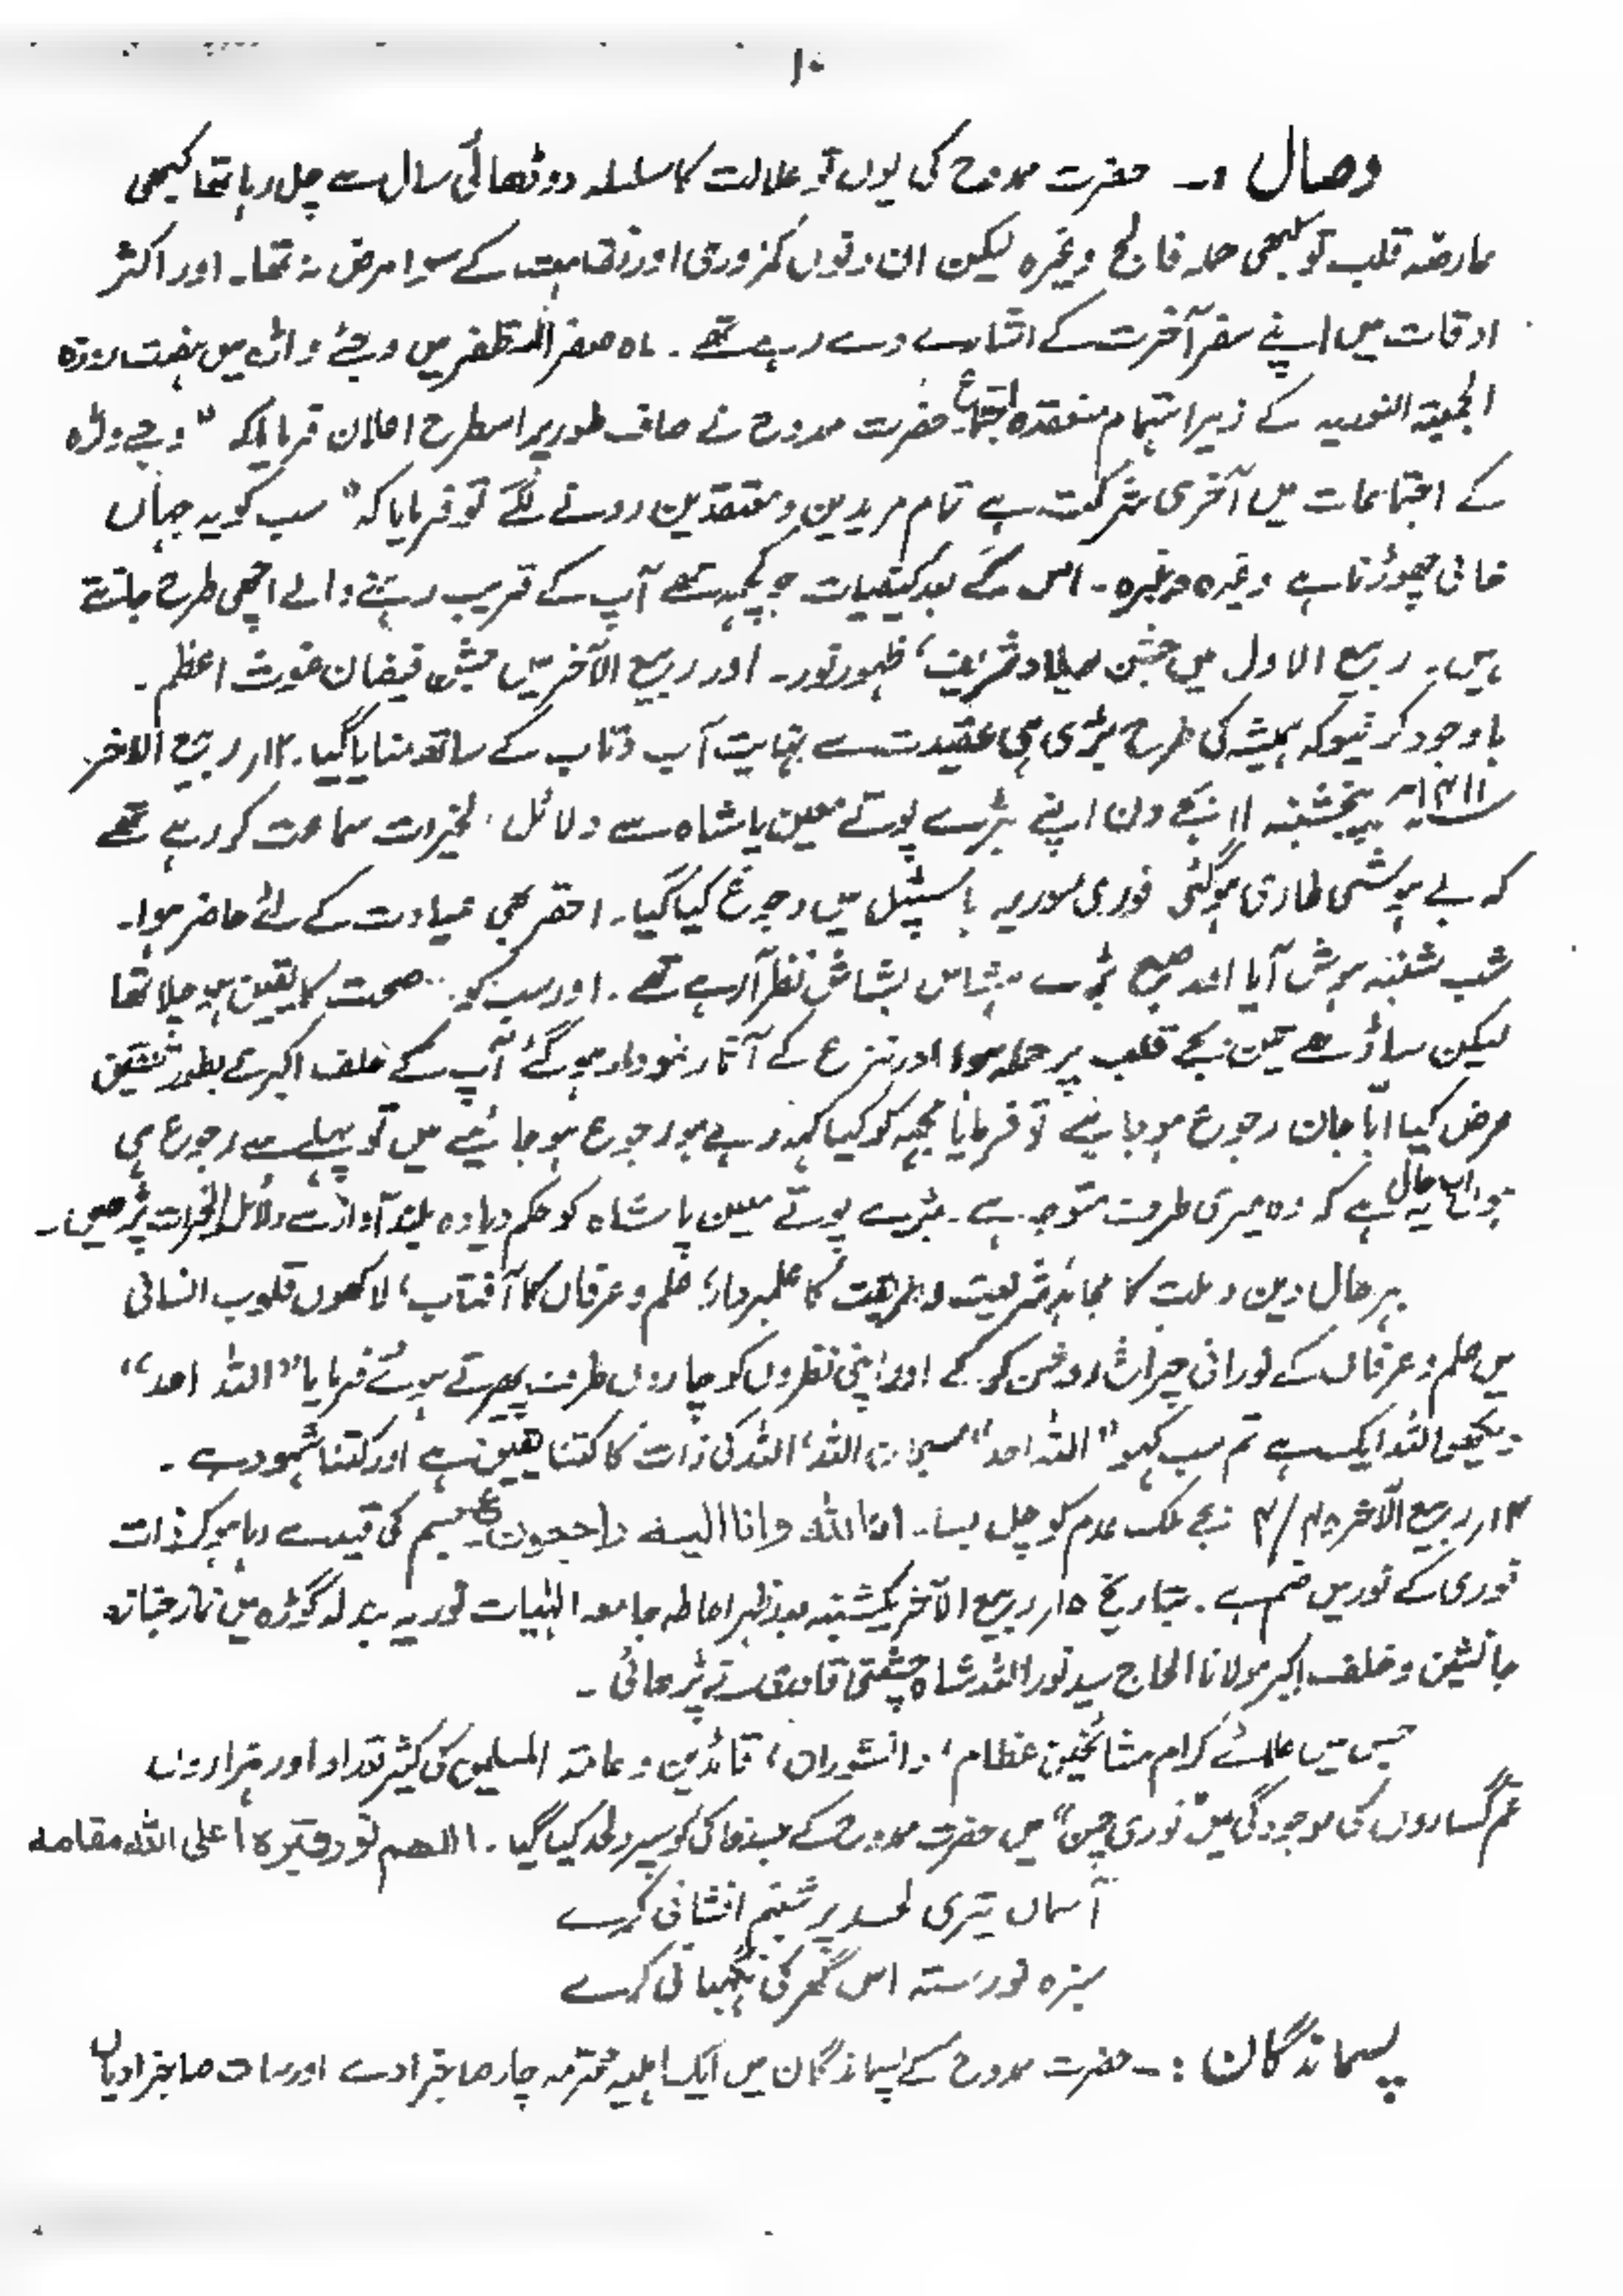 ۱۰
وصال :۔ حضرت ممدوح کی یوں تو علالت کا سلسلہ دو ڈھائی سال سے چل رہا تھا کبھی
عارضہ قلب تو کبھی حملہ فالج وغیرہ لیکن ان دنوں کمزوری اور نقاہت کے سوا مرض نہ تھا۔ اور اکثر
اوقات میں اپنے سفر آخرت کے اشارے دے رہے تھے ۔ ماہ صفر المظفر میں وجئے واڑہ میں ہفت روزہ
الجمیعۃ النوریہ کے زیر اہتمام منعقدہ اجتماع حضرت ممدوح نے صاف طور پر اسطرح اعلان فرمایا کہ " وجے وڑہ
کے اجتماعات میں آخری شرکت ہے تمام مریدین و معتقدین رونے لگے تو فرمایا کہ " سب کو یہ جہاں
فانی چھوڑنا ہے وغیرہ وغیرہ ۔ اس کے بعد کیفیات جو کچھ تھے آپ کے قریب رہنے والے اچھی طرح جانتے
ہیں۔ ربیع الاول میں جشن میلاد شریف، ظہور نور۔ اور ربیع الآخر میں جشن فیضان غوث اعظم ۔
باوجود کرفیو کہ ہمیشہ کی طرح بڑی ہی عقیدت سے نہایت آب و تاب کے ساتھ منایا گیا۔ ۱۲ر ربیع الاخر
۱۴۱۱ھ پنجشنبہ ۱۱ بجے دن اپنے بڑے پوتے معین پاشاہ سے دلائل الخیرات سماعت کر رہے تھے
کہ بے ہوشی طاری ہوگئی فوری موریہ ہاسپٹل میں رجوع کیا گیا۔ احقر بھی عیادت کے لئے حاضر ہوا۔
شب شنبہ ہوش آیا اور صبح بڑے ہشاش بشاش نظر آرہے تھے ۔ اور سب کو صحت کا یقین ہو چلا تھا
لیکن ساڑھے تین بجے قلب پر حملہ ہوا اور نزع کے آثار نمودار ہوگئے آپ کے خلف اکبر نے بطور تلقین
عرض کیا ابا جان رجوع ہو جائیے تو فرمایا مجھ کو کیا کہہ رہے ہو رجوع ہو جائیے میں تو پہلے سے رجوع ہی
ہوں اب حال یہ ہے کہ وہ میری طرف متوجہ ہے ۔ بڑے پوتے معین پاشاہ کو حکم دیا وہ بلند آواز سے دلائل الخیرات پڑھیں ۔
بہر حال دین و ملت کا مجاہد شریعت و طریقت کا علمبردار، علم و عرفاں کا آفتاب، لاکھوں قلوب انسانی
میں علم و عرفاں کے نورانی چراغ روشن کر کے اور اپنی نظروں کو چاروں طرف پھیرتے ہوئے فرمایا "اللہ احد"
دیکھو اللہ ایک ہے تم سب کہو "اللہ احد" سبحان اللہ، اللہ کی ذات کا کتنا یقین ہے اور کتنا شہود ہے ۔
۱۴ر ربیع الآخر ۴/۴۵ بجے ملک عدم کو چل بسا۔ انا للہ وانا الیہ راجعون ع جسم کی قید سے رہا ہو کر ذات
نوری کے نور میں ضم ہے ۔ بتاریخ ۱۵ر ربیع الآخر یکشنبہ بعد ظہر احاطہ جامعہ الہٰیات نوریہ بندلہ گوڑہ میں نماز جنازہ
جانشین و خلف اکبر مولانا الحاج سید نور اللہ شاہ چشتی قادری نے پڑھائی ۔
جس میں علمائے کرام مشائخین عظام، دانشوران، قائدین و عامۃ المسلمین کی کثیر تعداد اور ہزاروں
غم گساروں کی موجودگی میں "نوری چمن" میں حضرت ممدوح کے جسد خاکی کو سپرد لحد کیا گیا ۔ اللھم نور قبرہ اعلی اللہ مقامہ
آسماں تیری لحد پر شبنم افشانی کرے
سبزہ نورستہ اس گھر کی نگہبانی کرے
پسماندگان :۔ حضرت ممدوح کے پسماندگان میں ایک اہلیہ محترمہ چار صاحبزادے اور سات صاحبزادیاں